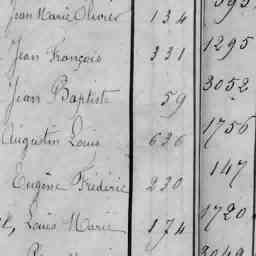 Jean Marie Olivier 134
Jean François 331 1295
Jean Baptiste 59 3052
Augustin Louis 626 1756
Eugène Frédéric 230 147
Louis Marie 174 1720